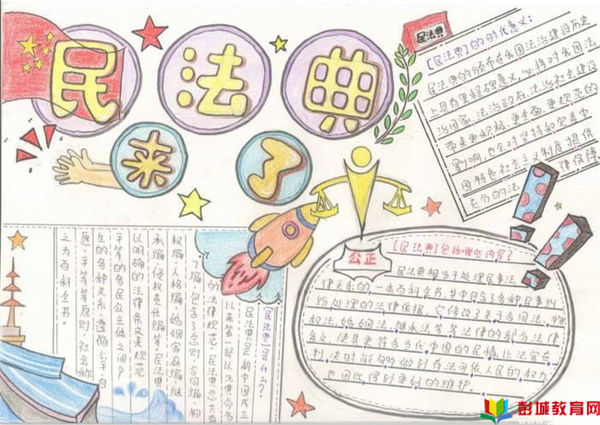 民法典
来了
民法典
【民法典】的时代意义:
民法典的颁布在我国法治建设历史
上具有里程碑意义,必将对我国法
治国家、法治政府、法治社会建设
带来更积极、更全面、更规范的
影响,也会对坚持和完善中
国特色社会主义制度提供
充分的法律保障
公正
【民法典】包括哪些内容?
民法典相当于处理民事法
律关系的一本百科全书,其中包含了各种民事纠
纷处理的法律依据,它修改了关于合同法、物
权法、婚姻法、继承法等等法律的部分法律
条文,使其更符合当代中国的国情,让法官在
判决时能够做到有法可依,人民的权力
也因此得到更好的维护。
【民法典】是什么?
民法典是新中国成立
以来第一部以法典命名
的法律规范,民法典》共有
7编,包含了总则、合同编、物
权编、人格编、婚姻家庭编、继
承编、侵权责任编等,民法典》
以明确的法律条文来规范
平等的各民众主体之间产
生的各种关系,遵循公平自
愿、平等等原则,社会称
之为百科全书。
彭城教育网